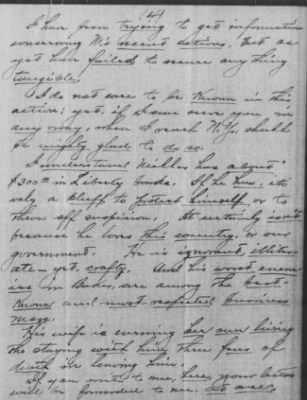 (4)
I have been trying to get information
concerning M's recent actions, but as
yet have failed to secure anything
tangible.
I do not care to be known in this,
active; yet, if I can serve you in
any way, when I reach N.Y., shall
be mighty glad to do so.
I understand has about
$300.00 in Liberty bonds. If he has, it's
only a bluff to protect himself, or to
throw off suspicion. It certainly isn't
because he loves this country, or our
government. He is ignorant, illiter-
ate - yet, crafty. And his worst enem-
ies in are among the best-
known and most-respected business
men.
His wife is earning her own living
tho staying with him thru fear of
in leaving him.
If you write to me, here, your letter
will be forwarded to me, at once.